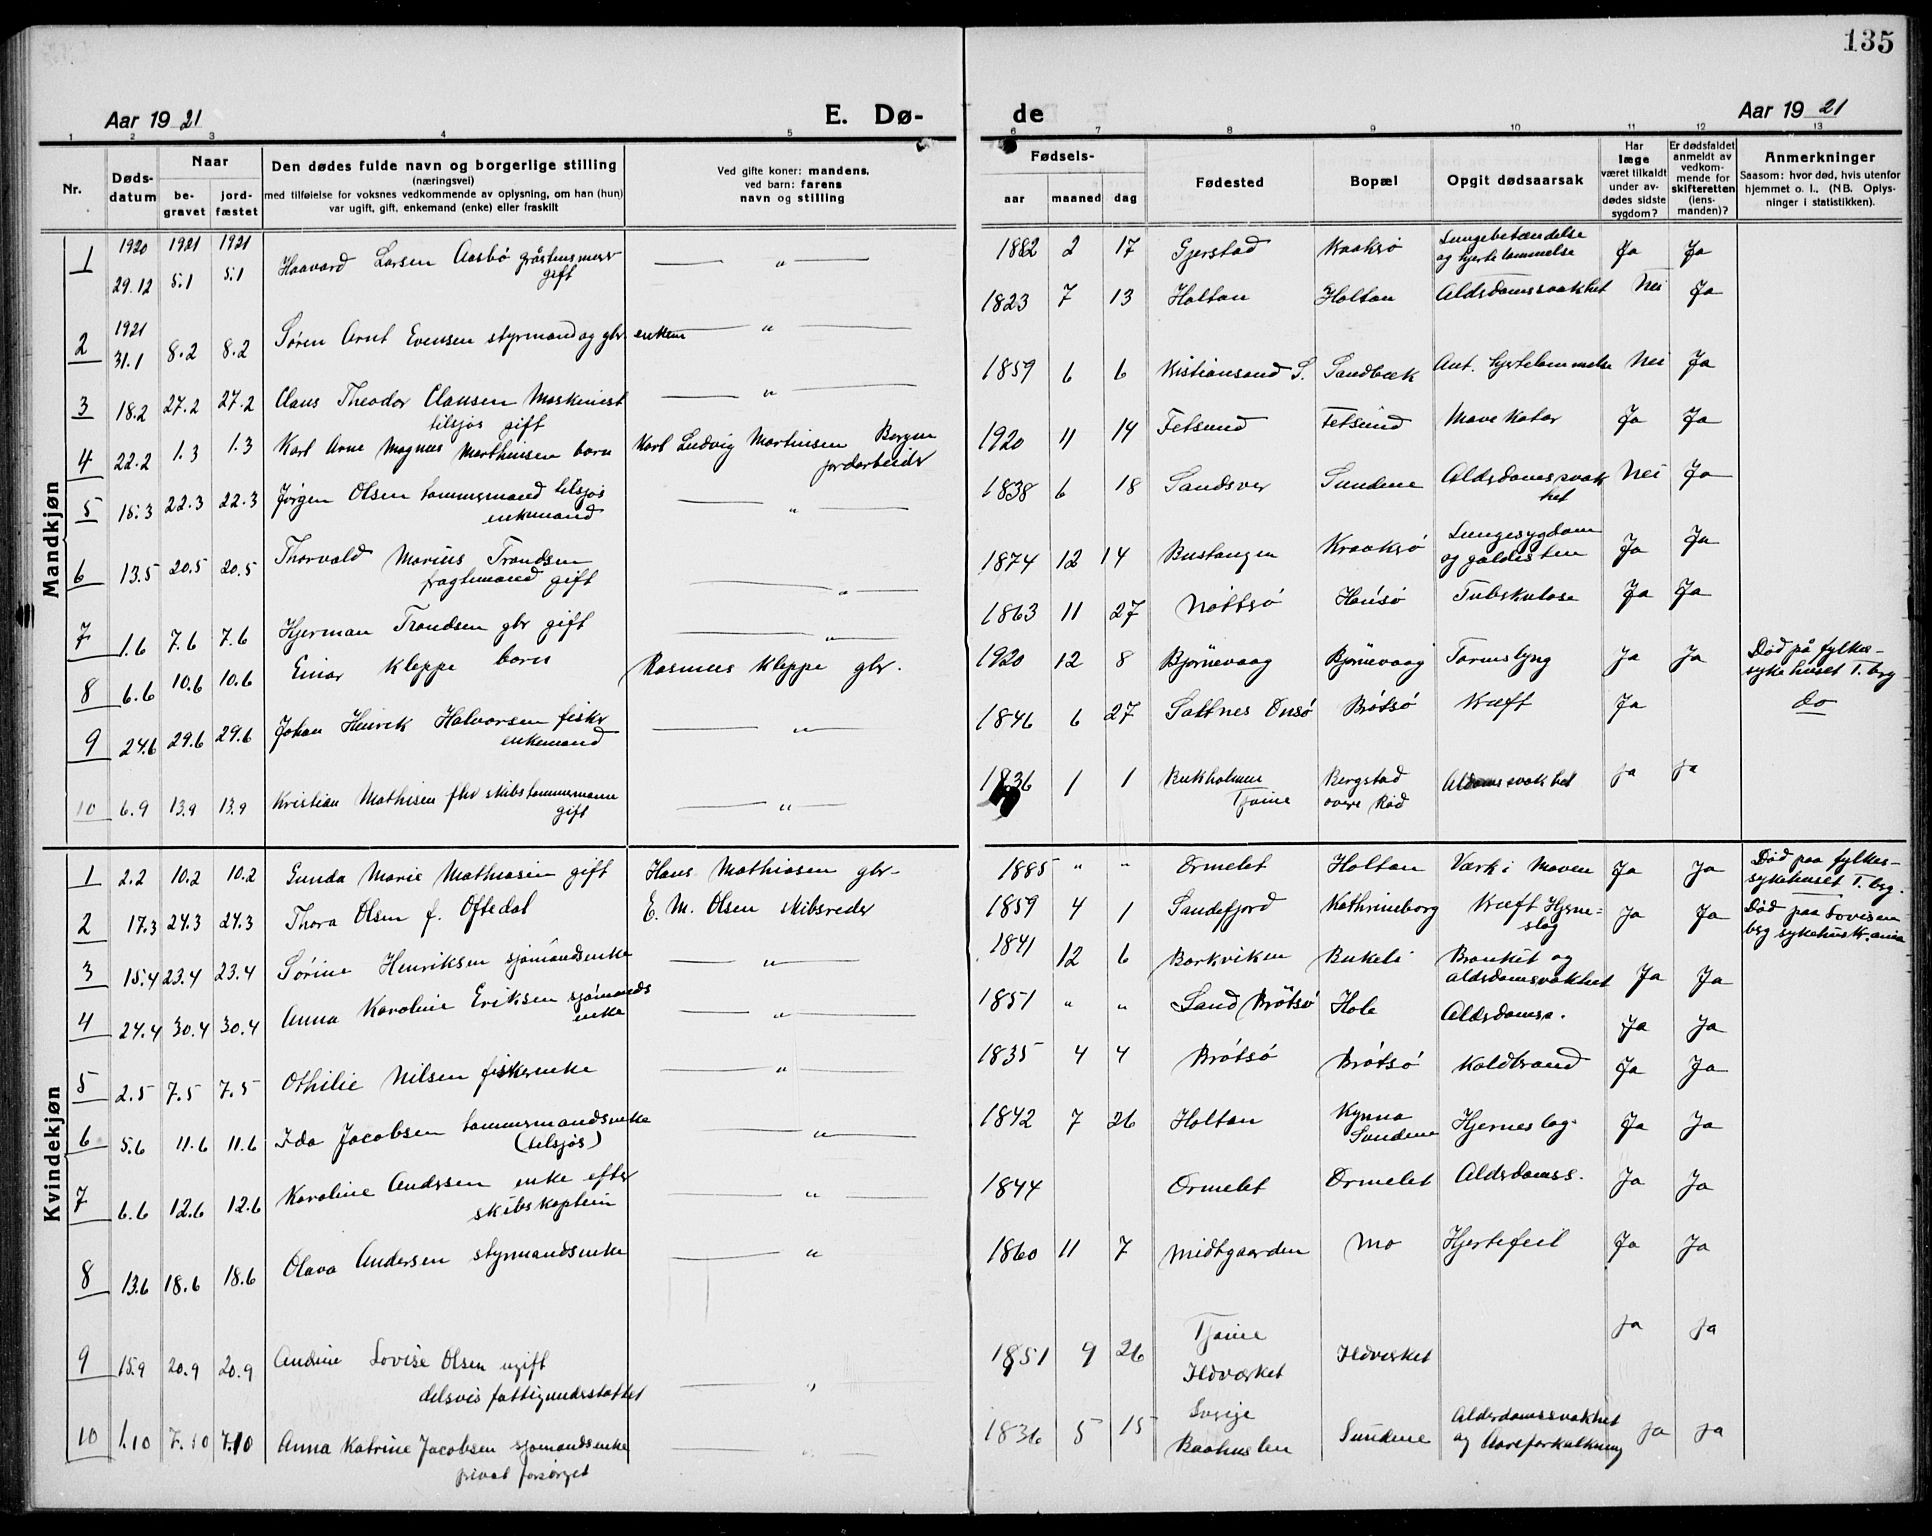 135
Aar 1921 E. Dø- de Aar 1921
1 2 3 4 5 6 7 8 9 10 11 12 13
Nr. Døds-datum Naar be-gravet jord-fæstet Den dødes fulde navn og borgerlige stilling (næringsvei) med tilføielse for voksnes vedkommende av oplysning, om han (hun) var ugift, gift, enkemand (enke) eller fraskilt Ved gifte koner: mandens, ved barn: farens navn og stilling Fødsels- aar maaned dag Fødested Bopæl Opgit dødsaarsak Har læge været tilkaldt under av-dødes sidste sygdom? Er dødsfaldet anmeldt av vedkom-mende for skifteretten (lens-manden)? Anmerkninger Saasom: hvor død, hvis utenfor hjemmet o. l., (NB. Oplys-ninger i statistikken).
Mandkjøn
1 1920 29.12 1921 5.1 1921 5.1 Haavard Larsen Aasbø gift — " — 1882 2 17 Gjerstad Kraaksø Lungebetændelse og hjertelammelse Ja Ja
2 1921 31.1 8.2 8.2 Søren Arnt Evensen styrmand og gbr. enkem — " — 1823 7 13 Holtan Holtan Aldsdomssvakhet Nei Ja
3 18.2 27.2 27.2 Claus Theodor Clausen Maskinist tilsjøs gift — " — 1859 6 6 Kristiansand S. Sandbæk Ant. hjertelammelse Nei Ja
4 22.2 1.3 1.3 Karl Arne Magnus Marthinsen barn Karl Ludvig Martinsen Bergan jordarbeider 1920 11 14 Fetsund Fetsund Mave katar Ja Ja
5 15.3 22.3 22.3 Jørgen Olsen tømmermand tilsjøs enkemand — " — 1838 6 18 Sandsver Sundene Alderdomssvakhet Nei Ja
6 13.5 20.5 20.5 Thorvald Marius Trondsen fragtemand gift — " — 1874 12 14 Bustangen Kraaksø Lungesygdom og galdesten Ja Ja
7 1.6 7.6 7.6 Hjerman Trondsen gbr gift — " — 1863 11 27 Nøttsø Hausø Tubskulose Ja Ja
8 6.6 10.6 10.6 Einar Kleppe barn Rasmus Kleppe gbr. 1920 12 8 Bjørnevaag Bjørnevaag Tarmslyng Ja Ja Død på fylkes-sykehuset T.brg
9 24.6 29.6 29.6 Johan Henrik Halvorsen fisker enkemand — " — 1846 6 27 Saltnes Onsø Brøtsø Kræft Ja do
10 6.9 13.9 13.9 Kristian Mathisen fhv skibstømmermann gift — " — 1836 1 1 Bukholmen Tjøme Bergstad øvre Rød Alderdomssvakhet ja ja
Kvindekjøn
1 2.2 10.2 10.2 Gunda Marie Mathiasen gift Hans Mathiasen gbr. 1885 " " Ormelet Holtan Værk i Maven Ja Ja Død paa fylkes-sykehuset T. brg.
2 17.3 24.3 24.3 Thora Olsen f. Oftedal E. M. Olsen skibsreder 1859 4 1 Sandefjord Kathrineborg Kræft Hjerneslag Ja Ja Død paa Lovisenbrg sykehus Kr.ania
3 15.4 23.4 23.4 Sørine Henriksen sjømandsenke — " — 1841 12 6 Barkviken Bukeli Bronkit og aldsdomsvakhet Ja Ja
4 24.4 30.4 30.4 Anna Karoline Eriksen sjømands enke — " — 1851 " " Sand (Brøtsø Hole Aldsdomss. Ja Ja
5 2.5 7.5 7.5 Othilie Nilsen fiskerenke — " — 1835 4 4 Brøtsø Brøtsø Koldbrand Ja Ja
6 5.6 11.6 11.6 Ida Jacobsen tømmermandsenke (tilsjøs) — " — 1842 7 26 Holtan Kynna Sundene Hjerneslag. Ja Ja
7 6.6 12.6 12.6 Karoline Andersen enke efter skibskaptein — " — 1844 Ormelet Ormelet Aldsdomss. Ja Ja
8 13.6 18.6 18.6 Olava Andersen styrmandsenke — " — 1860 11 7 Midtgaarden Mo Hjertefeil Ja Ja
9 15.9 20.9 20.9 Andine Lovise Olsen ugift delsvis fattigunderstøttet — " — 1851 9 26 Tjøme Ildverket Ildverket ja ja
10 1.10 7.10 7.10 Anna Katrine Jacobsen sjømandsenke privat forsørget " 1836 5 15 Sverige Baahuslen Sundene Alderdomssvakhet og Aareforkalkning ja ja